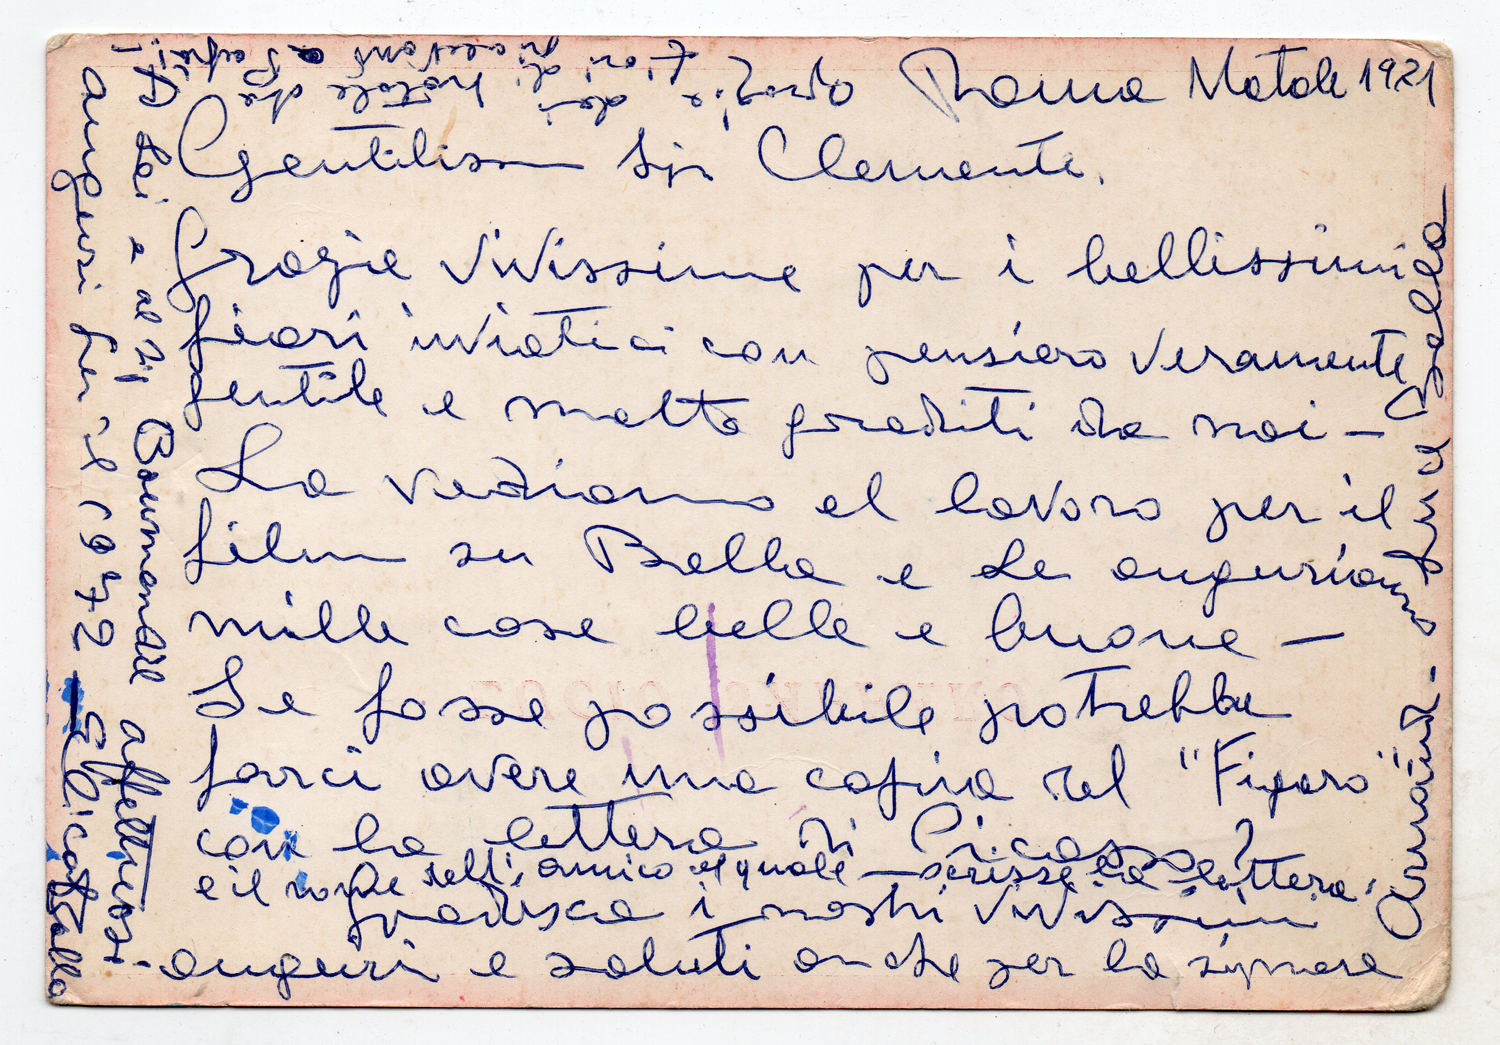 Roma Natale 1921
Gentilissm Sig Clemente.
Grazie vivissime per i bellissimi
fiori inviatici con pensiero veramente
gentile e molto graditi da noi —
La vediamo al lavoro per il
film su Balla e Le auguriamo
mille cose belle e buone —
Se fosse possibile potrebbe
farci avere una copia del "Figaro"
con la lettera di Picasso?
e il nome dell'amico al quale scrisse la lettera!
Gradisca i nostri vivissimi
auguri e saluti anche per la signora
Luce Balla
A Lei e al Sig affettuosi
auguri per il 1972 — Elica Balla
Natale
fiori di